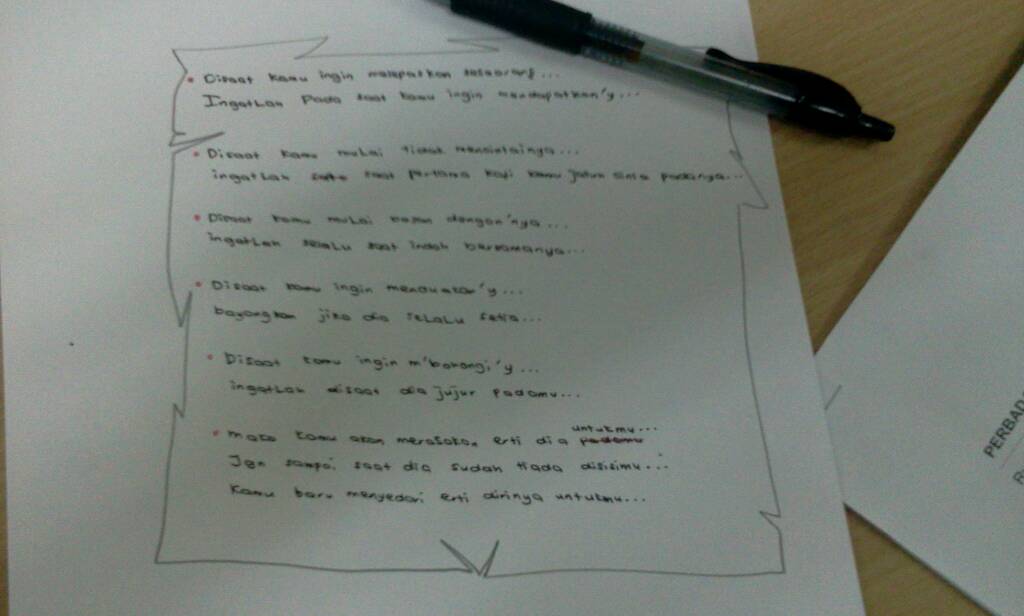 Disaat kamu ingin melepatkan seseorang...
Ingatlah Pada saat kamu ingin mendapatkan'y...
Disaat kamu mulai tidak mencintainya...
ingatlah saat pertama kali kamu jatuh cinta padanya...
Disaat kamu mulai bosan dengan'nya...
ingatlah selalu saat indah bersamanya...
Disaat kamu ingin menduakan'y...
bayangkan jika dia selalu setia...
Disaat kamu ingin m'bohongi'y...
ingatlah disaat dia jujur padamu...
maka kamu akan merasakan erti dia padamu untukmu...
Jgn sampai saat dia sudah tiada disisimu...
Kamu baru menyedari erti dirinya untukmu...
PERBAD